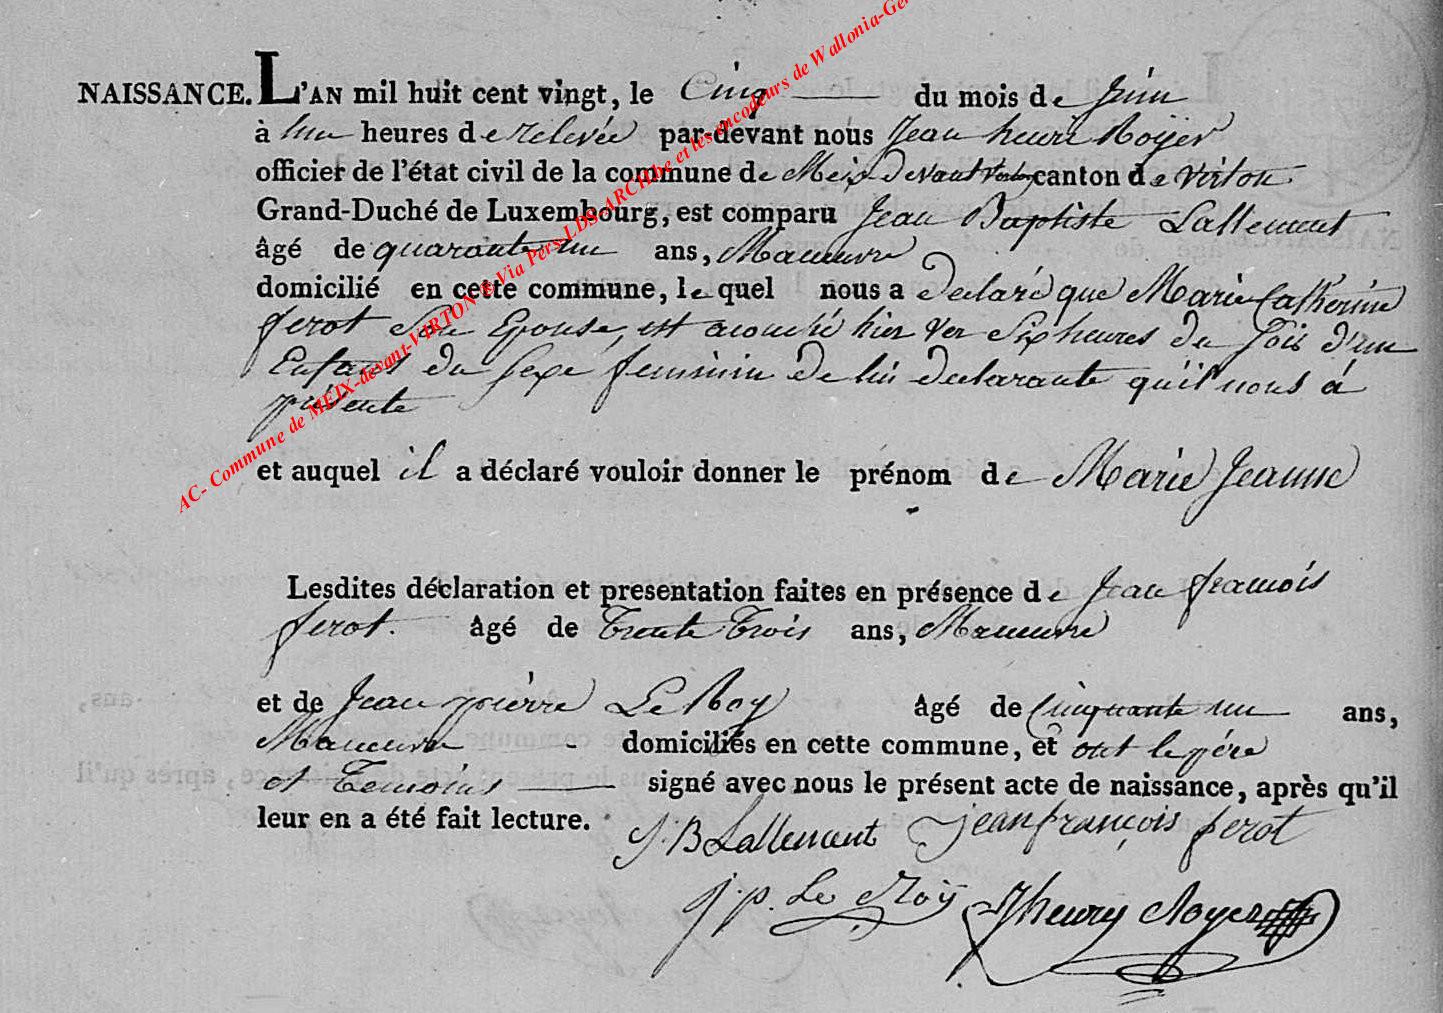 NAISSANCE. L'AN mil huit cent vingt, le Cinq du mois de Juin
à une heures de relevée par-devant nous Jean henri Royer
officier de l'état civil de la commune de Meix Devant Virton canton de virton
Grand-Duché de Luxembourg, est comparu Jean Baptiste Lallement
âgé de quarante un ans, Manœuvre
domicilié en cette commune, le quel nous a declaré que Marie Catherine
ferot Son Epouse, est acouché hier ver Six heures du Soir d'un
Enfant du Sexe feminin de lui declarante qu'il nous à
présenté
et auquel il a déclaré vouloir donner le prénom de Marie Jeanne
Lesdites déclaration et presentation faites en présence de Jean françois
ferot. âgé de Trente Trois ans, Manœuvre
et de Jean pièrre Le Roy âgé de Cinquante un ans,
Manœuvre domiciliés en cette commune, et ont le père
et Temoins signé avec nous le présent acte de naissance, après qu'il
leur en a été fait lecture.
J. B Lallement jean françois ferot
j. p. Le Roÿ Jhenry Royer
AC- Commune de MEIX-devant-VIRTON ® Via Pers LDS-ARCH.be et les encodeurs de Wallonia-Ge